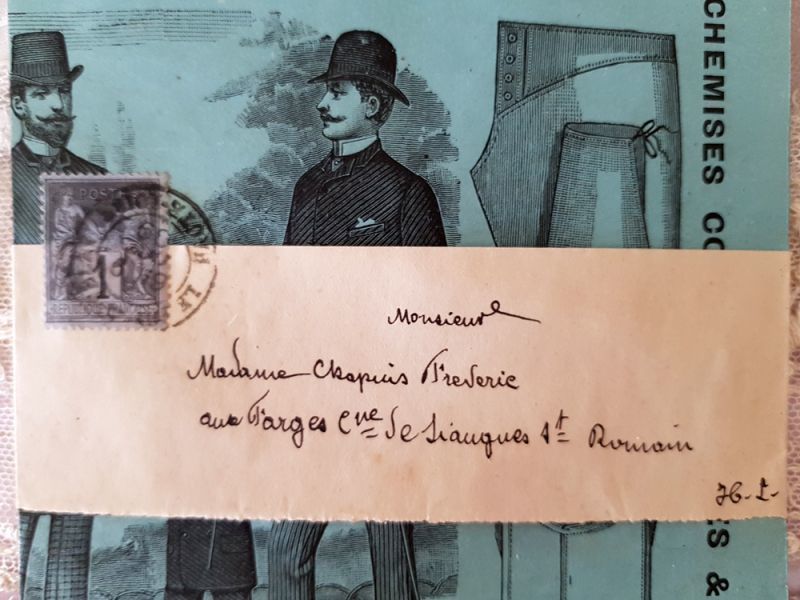 CHEMISES
POSTES
1c
REPUBLIQUE FRANCAISE
Monsieur
Madame Chapuis Frederic
aux Farges Cne de Siaugues St Romain
Hte L.
ES &